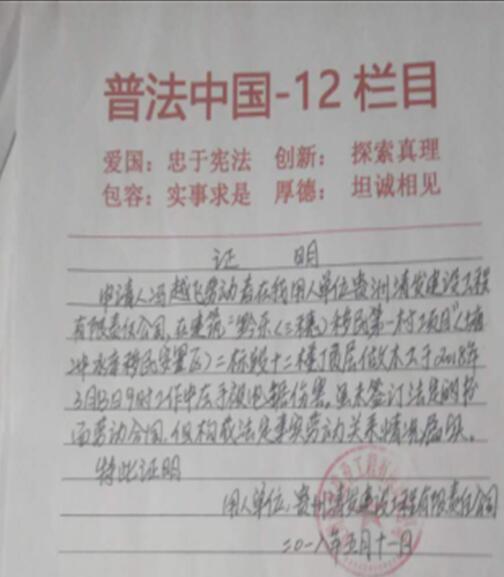 普法中国-12栏目
爱国：忠于宪法 创新：探索真理
包容：实事求是 厚德：坦诚相见
证 明
申请人冯越飞劳动者在我用人单位贵州清发建设工程
有限责任公司，在建筑"黔东(三穗)移民第一村项目"(
冲水库移民安置区)二标段十二楼顶层做木工于2018年
3月13日9时工作中左手被电锯伤害。虽未签订法定的书
面劳动合同，但构成法定事实劳动关系情况属实。
特此证明
用人单位：贵州清发建设工程有限责任公司
二〇一八年五月十一日